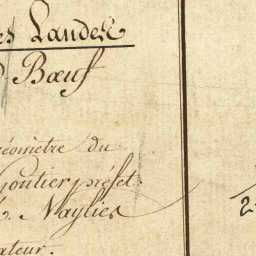 es Landes
Bœuf
éomètre du
Goutier préfet
Naylies
ateur.
2